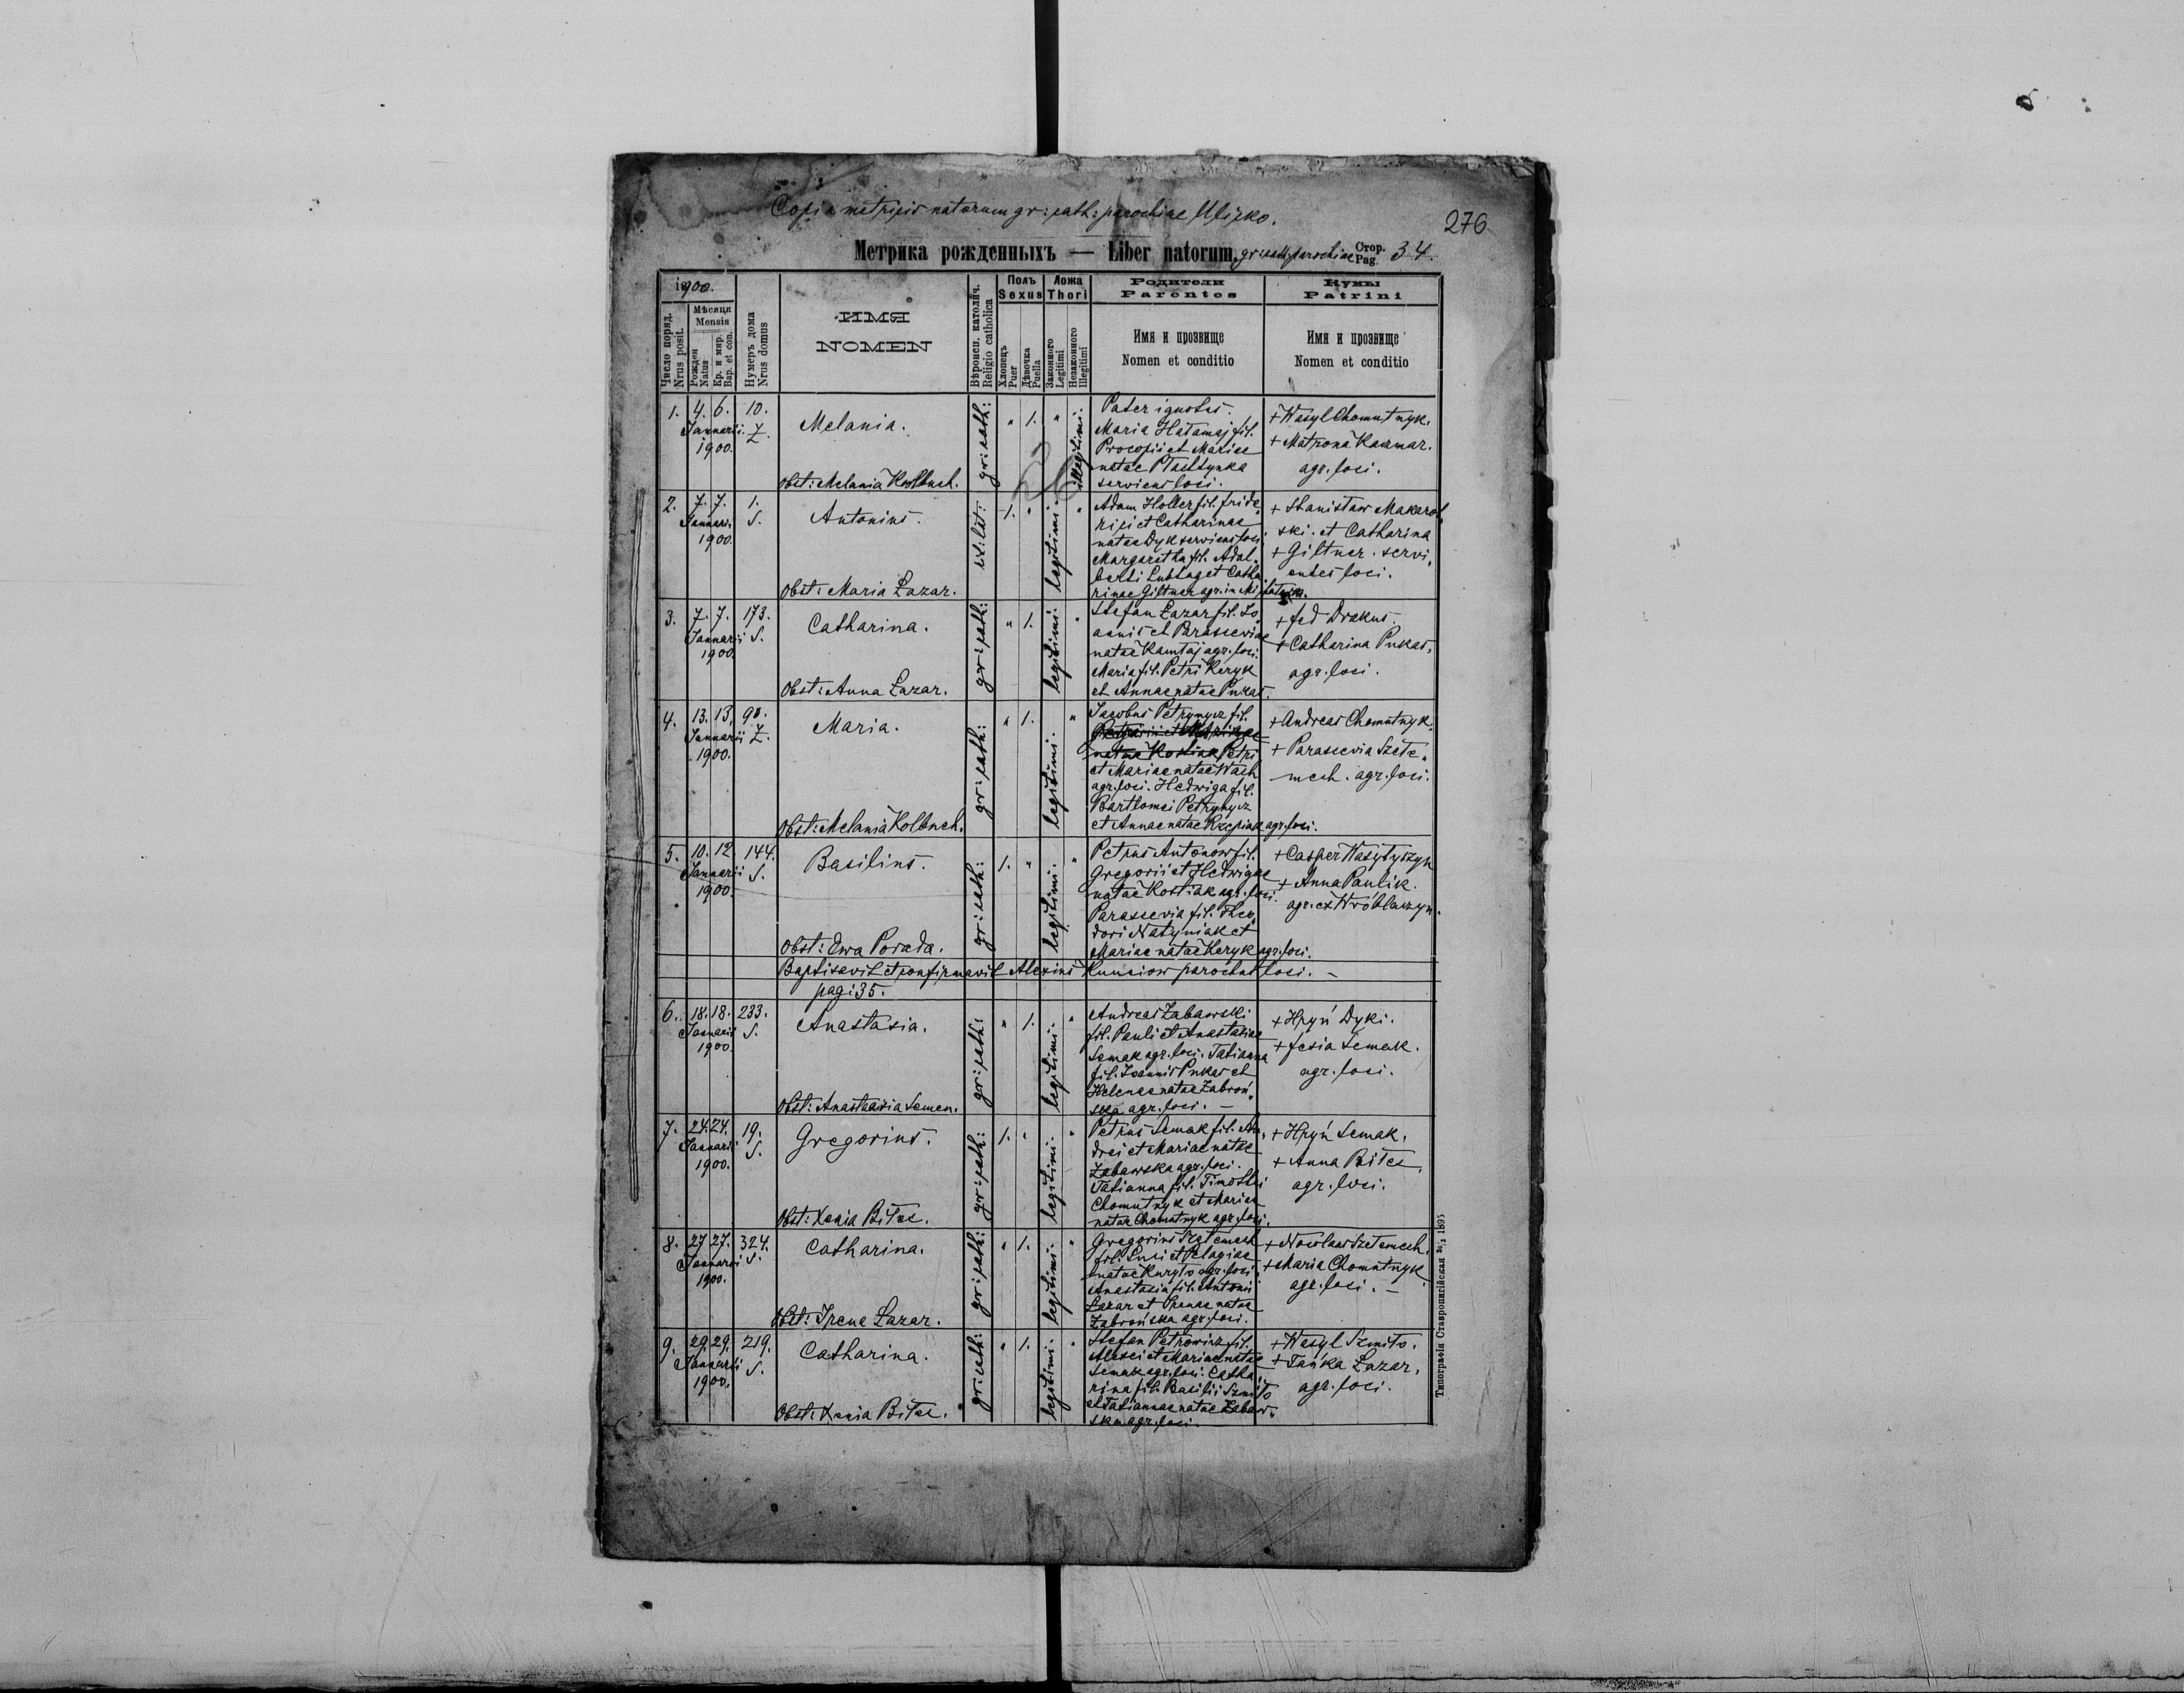 Copia metricis natorum gr: cath: parochiae Ulicko.
276
Метрика рожденныхъ — Liber natorum gr: cath: parochiae Стор. Pag. 34.
1900.
Число поряд. Nrus posit.
Мѣсяца Mensis
Рожден Natus
Кр. и мир. Bap. et con.
Нумеръ дома Nrus domus
ИМЯ
NOMEN
Вѣроисп. католич. Religio catholica
Полъ Sexus
Хлопецъ Puer
Дѣвочка Puella
Ложа Thori
Законного Legitimi
Незаконного Illegitimi
Родители
Parentes
Имя и прозвище
Nomen et conditio
Кумы
Patrini
Имя и прозвище
Nomen et conditio
1. 4. 6. Januarii 1900. 10. Z.
Melania.
Obst: Melania Kolbuch.
gr: cath:
" 1. " illegitimi.
26
Pater ignotus.
Maria Hałamaj fil.
Procopii et Mariae
natae
serviens loci.
+ Wasyl Chomutnyk.
+ Matrona Kaczmar.
agr. loci.
2. 7. 7. Januar. 1900. 1. S.
Antonius.
Obst: Maria Łazar.
rit: lat:
1. " legitimi. "
Adam Holler fil. Fride
rici et Catharinae
natae Dyk serviens loci.
Margaretha fil. Adal
berti et Catha
rinae Giltner agr. in
+ Stanisław Makarow
ski. et Catharina
+ Giltner. servi
entes loci.
3. 7. 7. Januarii 1900. 173. S.
Catharina.
Obst: Anna Łazar.
gr: cath:
" 1. legitimi. "
Stefan Łazar fil. Jo
annis et Parasceviae
natae agr. loci.
Maria fil. Petri Keryk
et Annae natae Pukas.
+ Fed Drakus.
+ Catharina Pukas,
agr. loci.
4. 13. 13. Januarii 1900. 90. Z.
Maria.
Obst: Melania Kolbuch.
gr: cath:
" 1. legitimi. "
Jacobus Petrynycz fil.
Petri
et Mariae natae Wach
agr. loci. Hedwiga fil.
Bartłomei Petrynycz
et Annae natae Rzepiak agr. loci.
+ Andreas Chomutnyk.
+ Parascevia Szete
mech. agr. loci.
5. 10. 12. Januarii 1900. 144. S.
Basilius.
Obst: Ewa Porada.
gr: cath:
1. " legitimi. "
Petrus Antonow fil.
Gregorii et Hedwigae
natae Kostiak agr. loci.
Parascevia fil. Theo
dori Natyniak et
Mariae natae Keryk agr. loci.
+ Casper Wasyłyszyn
+ Anna Paulik.
agr. ex Wróblaczyn.
Baptisavit et confirmavit Alexius Kunciow parochus loci. -
pag: 35.
6. 18. 18. Januarii 1900. 233. S.
Anastasia.
Obst: Anastasia Semen.
gr: cath:
" 1. legitimi. "
Andreas Zabawski
fil. Pauli et Anastasiae
Semak agr. loci. Tatianna
fil. Joannis Pukas et
Helenae natae Zabroń
ska agr. loci. -
+ Hryń Dyki.
+ Fesia Semak.
agr. loci.
7. 24. 24. Januarii 1900. 19. S.
Gregorius.
Obst: Xenia Biłec.
gr: cath:
1. " legitimi. "
Petrus Semak fil. An
drei et Mariae natae
Zabawska agr. loci.
Tatianna fil. Timothei
Chomutnyk et Mariae
natae Chomutnyk agr. loci.
+ Hryń Semak.
+ Anna Biłec,
agr. loci.
8. 27. 27. Januarii 1900. 324. S.
Catharina.
Obst: Irena Łazar.
gr: cath:
" 1. legitimi. "
Gregorius Szetemech
fil. Luci et Pelagiae
natae Kuryło agr. loci.
Anastasia fil. Antonii
Łazar et Irenae natae
Zabrońska agr. loci.
+ Szetemech.
+ Maria Chomutnyk
agr. loci. -
9. 29. 29. Januarii 1900. 219. S.
Catharina.
Obst: Xenia Biłec.
gr: cath:
" 1. legitimi. "
Stefan Petrowicz fil.
Alexii et Mariae natae
Semak agr. loci. Catha
rina fil. Basilii Szmiło
et Tatiannae natae Zabaw
ska agr. loci. -
+ Wasyl Szmiło.
+ Tańka Łazar,
agr. loci.
Типографія Ставропигійская 1895